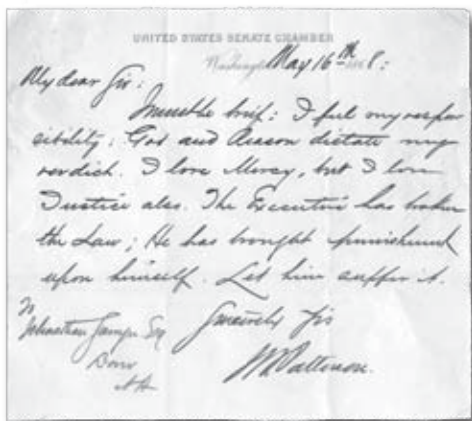 UNITED STATES SENATE CHAMBER
Washington May 16th 1868:
My dear Sir:
I must be brief: I feel my respon
sibility; God and Reason dictate my
verdict. I love Mercy, but I love
Justice also. The Executive has broken
the Law; He has brought punishment
upon himself. Let him suffer it.
Sincerely Yrs
To
Johnathan Esq
Dover
N H